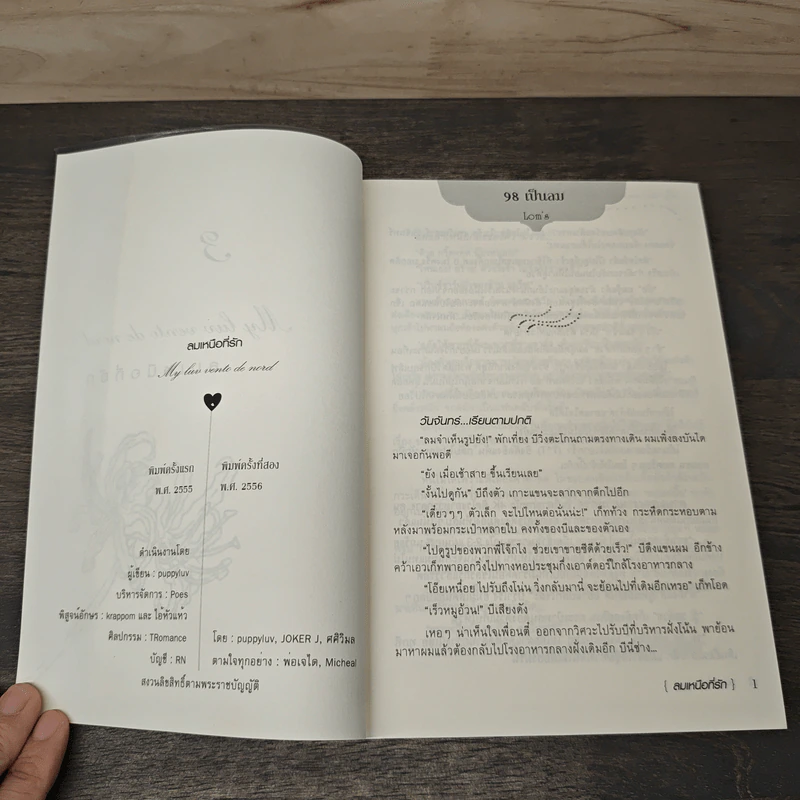 ลมเหนือที่รัก
My luv vento de nord
พิมพ์ครั้งแรก
พ.ศ. 2555
พิมพ์ครั้งที่สอง
พ.ศ. 2556
ดำเนินงานโดย
ผู้เขียน : puppyluv
บริหารจัดการ : Poes
พิสูจน์อักษร : krappom และ ไอ้หัวแห้ว
ศิลปกรรม : TRomance
บัญชี : RN
โดย : puppyluv, JOKER J, ศศิวิมล
ตามใจทุกอย่าง : พ่อเจไต, Micheal
สงวนลิขสิทธิ์ตามพระราชบัญญัติ
98 เป็นลม
Lom's
วันจันทร์...เรียนตามปกติ
“ลมจ๋าเห็นรูปยัง!” พักเที่ยง บีวิ่งตะโกนถามตรงทางเดิน ผมเพิ่งลงบันได
มาเจอกันพอดี
“ยัง เมื่อเช้าสาย ขึ้นเรียนเลย”
“งั้นไปดูกัน” บีถึงตัว เกาะแขนจะลากจากตึกไปอีก
“เดี๋ยวๆๆ ตัวเล็ก จะไปไหนต่อนั่นน่ะ!” เก็ทท้วง กระหืดกระหอบตาม
หลังมาพร้อมกระเป๋าหลายใบ คงทั้งของบีและของตัวเอง
“ไปดูรูปของพวกพี่โจ๊กไง ช่วยเขาขายซีดีด้วยเร็ว!” บีดึงแขนผม อีกข้าง
คว้าเอวเก็ทพาออกวิ่งไปทางหอประชุมกึ่งเอาต์ดอร์ใกล้โรงอาหารกลาง
“โอ๊ยเหนื่อย ไปรับถึงโน่น วิ่งกลับมานี่ จะย้อนไปที่เดิมอีกเหรอ” เก็ทโอด
“เร็วหมูอ้วน!” บีเสียงดัง
เหอๆ น่าเห็นใจเพื่อนตี๋ ออกจากวิศวะไปรับบีที่บริหารฝั่งโน้น พาย้อน
มาหาผมแล้วต้องกลับไปโรงอาหารกลางฝั่งเดิมอีก บีนี่ช่าง...
{ ลมเหนือที่รัก } 1